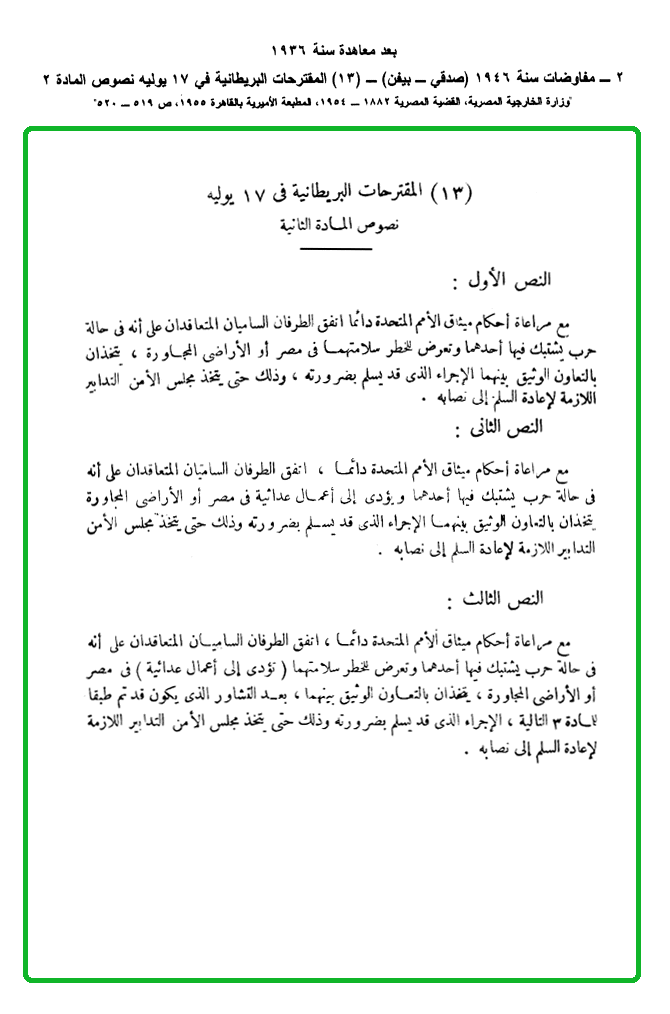 بعد معاهدة سنة ١٩٣٦
٢ ـ مفاوضات سنة ١٩٤٦ (صدقي ـ بيفن) ـ (١٣) المقترحات البريطانية في ١٧ يوليه نصوص المادة ٢
"وزارة الخارجية المصرية، القضية المصرية ١٨٨٢ ـ ١٩٥٤، المطبعة الأميرية بالقاهرة ١٩٥٥، ص ٥١٩ ـ ٥٢٠"
(١٣) المقترحات البريطانية فى ١٧ يوليه
نصوص المادة الثانية
النص الأول :
مع مراعاة أحكام ميثاق الأمم المتحدة دائما اتفق الطرفان الساميان المتعاقدان على أنه فى حالة
حرب يشتبك فيها أحدهما وتعرض للخطر سلامتهما فى مصر أو الأراضى المجاورة ، يتخذان
بالتعاون الوثيق بينهما الإجراء الذى قد يسلم بضرورته ، وذلك حتى يتخذ مجلس الأمن التدابير
اللازمة لإعادة السلم إلى نصابه .
النص الثانى :
مع مراعاة أحكام ميثاق الأمم المتحدة دائما ، اتفق الطرفان الساميان المتعاقدان على أنه
فى حالة حرب يشتبك فيها أحدهما ويؤدى إلى أعمال عدائية فى مصر أو الأراضى المجاورة
يتخذان بالتعاون الوثيق بينهما الإجراء الذى قد يسلم بضرورته وذلك حتى يتخذ مجلس الأمن
التدابير اللازمة لإعادة السلم إلى نصابه .
النص الثالث :
مع مراعاة أحكام ميثاق الأمم المتحدة دائما ، اتفق الطرفان الساميان المتعاقدان على أنه
فى حالة حرب يشتبك فيها أحدهما وتعرض للخطر سلامتهما ( تؤدى إلى أعمال عدائية ) فى مصر
أو الأراضى المجاورة ، يتخذان بالتعاون الوثيق بينهما ، بعد التشاور الذى يكون قد تم طبقا
للمادة ٣ التالية ، الإجراء الذى قد يسلم بضرورته وذلك حتى يتخذ مجلس الأمن التدابير اللازمة
لإعادة السلم إلى نصابه .